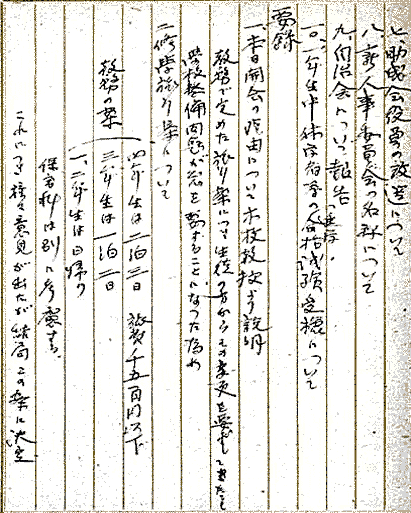 七、助成会役員の改選について
八、新人事委員会の名称について
九、自治会について報告
一〇、一年生中休学者等の合格試験受験について
要録
一、本日開会の理由について本校教授より説明
教務で定めた旅行案につき生徒の方からその変更を要望して来たことと
学校整備問題が急を要することになった為め
二、修学旅行案について
教務の案
四年生は二泊三日 旅費千五百円以下
三年生は一泊二日
一、二年生は日帰り
保谷村は別に考慮する。
これにつき種々意見が出たが結局この案に決定